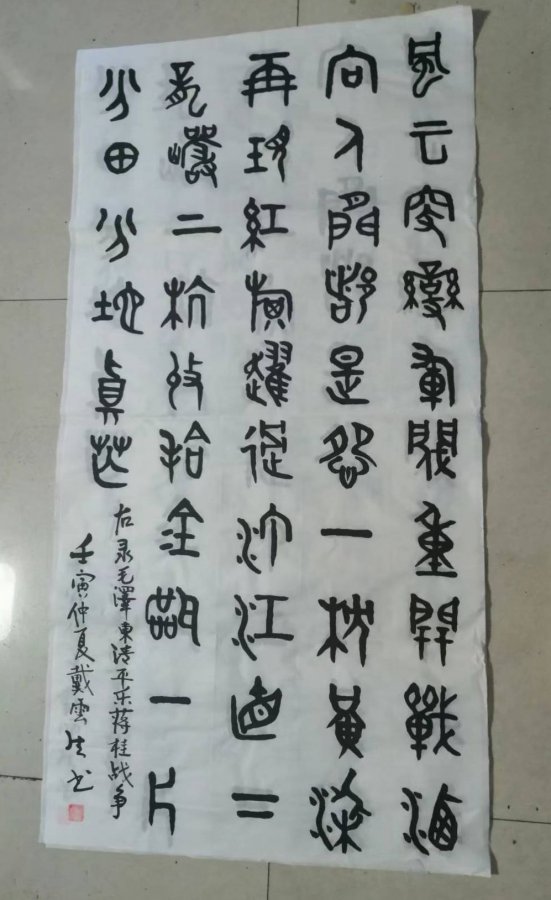 風云突變軍閥重開戰洒
向人間都是怨一枕黃粱
再現紅旗躍過汀江直下
龍巖上杭收拾金甌一片
分田分地真忙
右录毛澤東清平乐蒋桂战争
壬寅仲夏戴雲生书